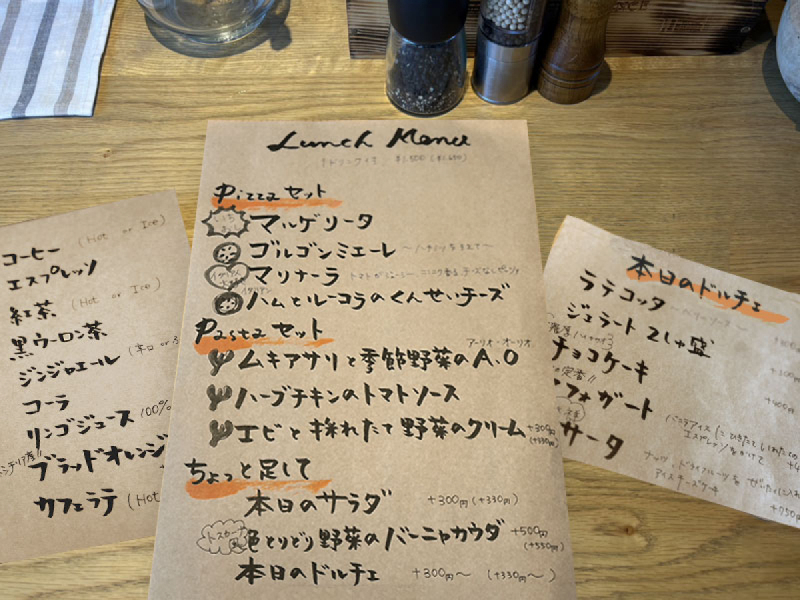 コーヒー (Hot or Ice)
エスプレッソ
紅茶 (Hot or Ice)
黒ウーロン茶
ジンジャエール
コーラ
リンゴジュース 100%
ブラッドオレンジ
カフェラテ (Hot
Lunch Menu
Pizzaセット
マルゲリータ
ゴルゴンミエーレ
マリナーラ
ハムとルーコラのくんせいチーズ
Pastaセット
アーリオ・オーリオ
ムキアサリと季節野菜のA.O
ハーブチキンのトマトソース
エビと採れたて野菜のクリーム +300円 (+330円)
ちょっと足して
本日のサラダ +300円 (+330円)
色とりどり野菜のバーニャカウダ +500円 (+550円)
本日のドルチェ +300円〜 (+330円〜)
本日のドルチェ
ジェラート 2しゅ盛
チョコケーキ
フォガート
バニラアイスに
エスプレッソをかけて
サータ
アイスチーズケーキ